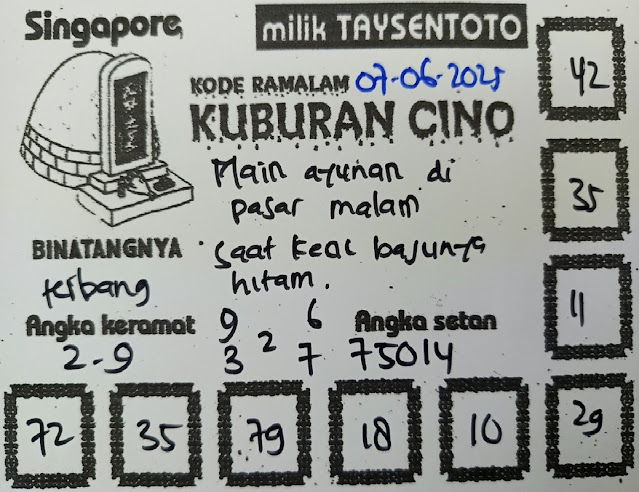 Singapore
milik TAYSENTOTO
KODE RAMALAM 07-06-2025
KUBURAN CINO
Main ayunan di
pasar malam
saat kecil bajunya
hitam.
BINATANGNYA
terbang
Angka keramat
2-9
9 6
2
3 7
Angka setan
75014
42
35
11
29
72 35 79 18 10